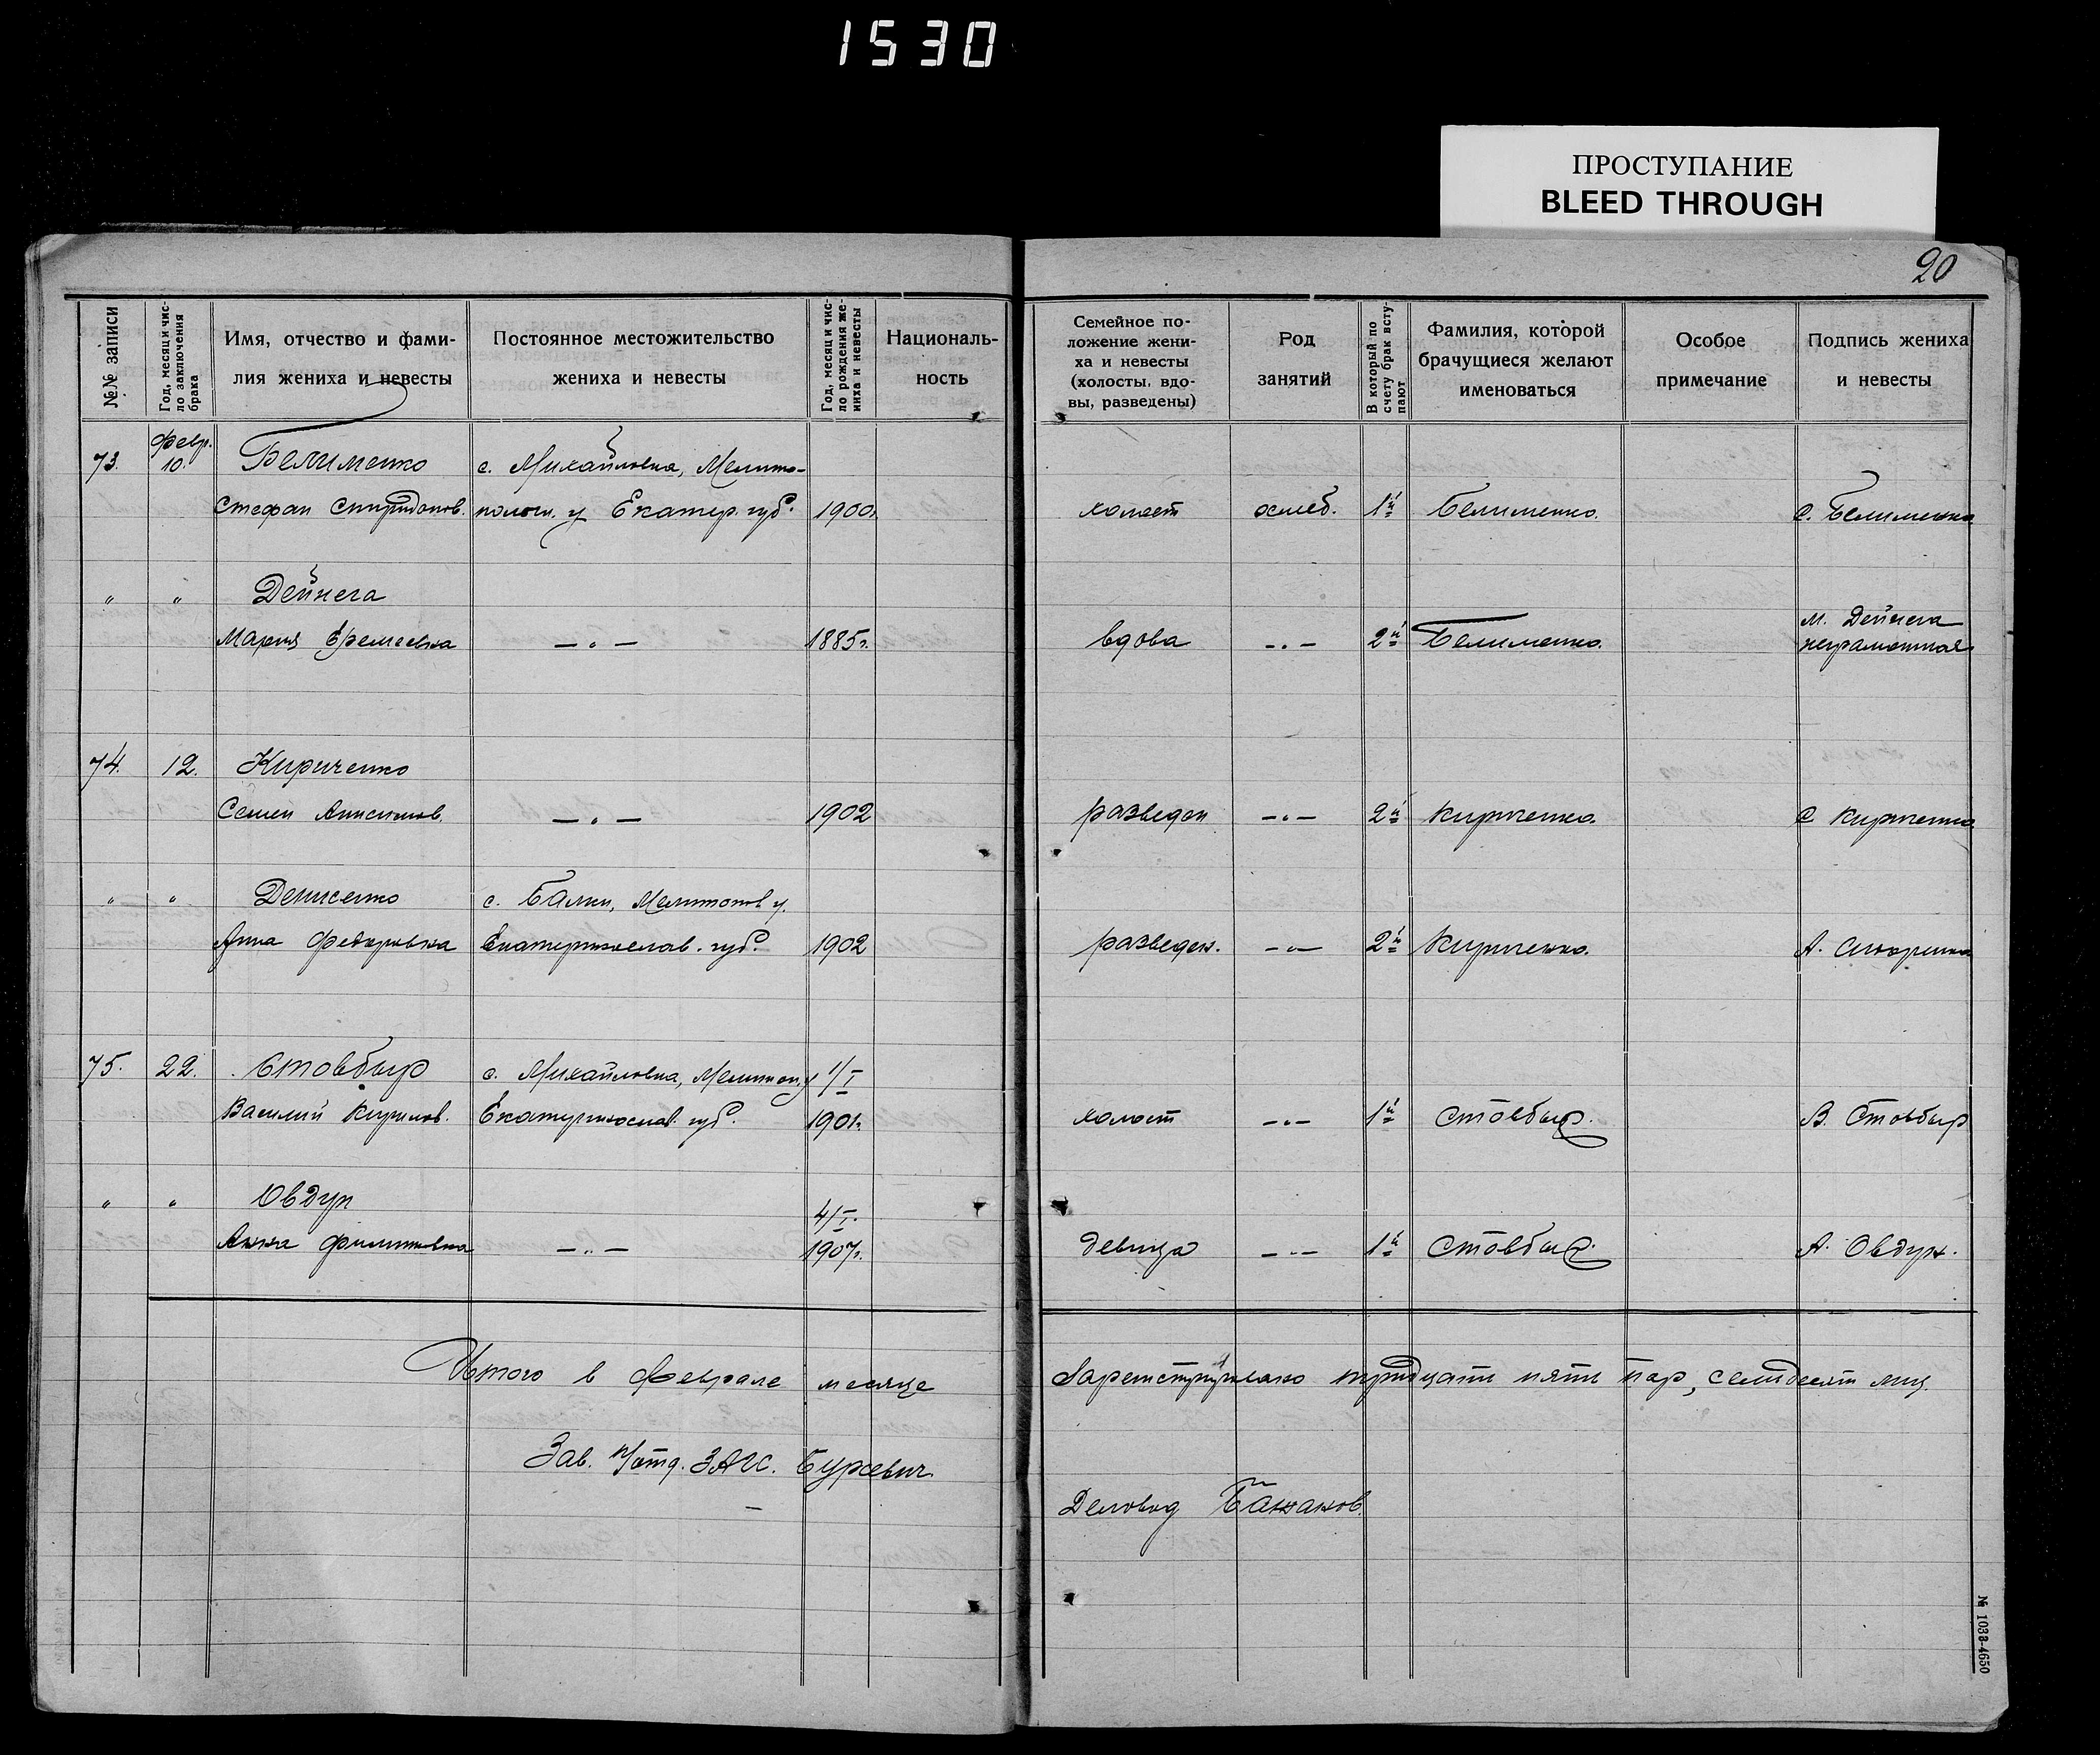 1530
ПРОСТУПАНИЕ
BLEED THROUGH
20
№№ записи
Год, месяц и чис-
ло заключения
брака
Имя, отчество и фами-
лия жениха и невесты
Постоянное местожительство
жениха и невесты
Год, месяц и чис-
ло рождения же-
ниха и невесты
Националь-
ность
Семейное по-
ложение жени-
ха и невесты
(холосты, вдо-
вы, разведены)
Род
занятий
В который по
счету брак всту-
пают
Фамилия, которой
брачущиеся желают
именоваться
Особое
примечание
Подпись жениха
и невесты
февр.
73. 10. Белименко с. Михайловка, Мелито-
Стефан Спиридонов. польск. у Екатер. губ. 1900г. холост хлеб. 1й Белименко. С. Белименко
" " Дейнега
М. Дейнега
Мария Еремеевна — " — 1885г. вдова — " — 2й Белименко. неграмотная
74. 12. Кириченко
Семен Анисимов. — " — 1902 разведен — " — 2й Кириченко. С Кириченко
" " Денисенко с. Балки, Мелитопов у.
Анна Федоровна Екатеринослав. губ. 1902 разведен. — " — 2й Кириченко. А.
75. 22. Стовбыр с. Михайловка, Мелитоп у 1/I
Василий Кирилов. Екатеринослав. губ. 1901г. холост — " — 1й Стовбыр. В. Стовбыр
" " Овдун 4/I.
Анна Филиповна — " — 1907г. девица — " — 1й Стовбыр. А. Овдун.
Итого в феврале месяце Зарегистрировано тридцать пять пар, семидесят лиц.
Зав. п/отд. ЗАГС. Буревич.
Деловод Бажанов.
№ 1038-4650